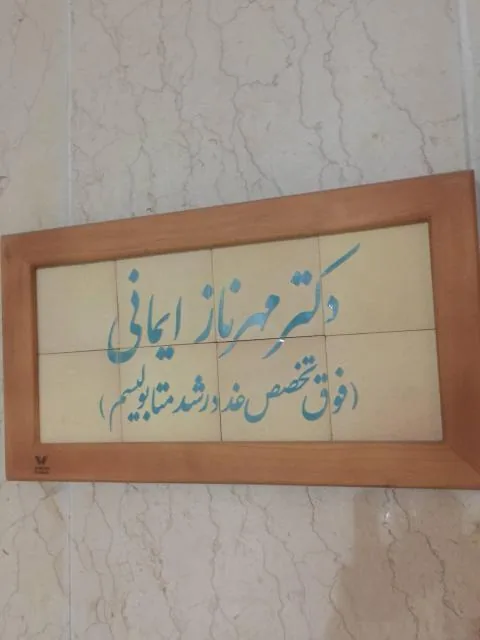 دکتر مهرناز ایمانی
(فوق تخصص غدد رشد متابولیسم)